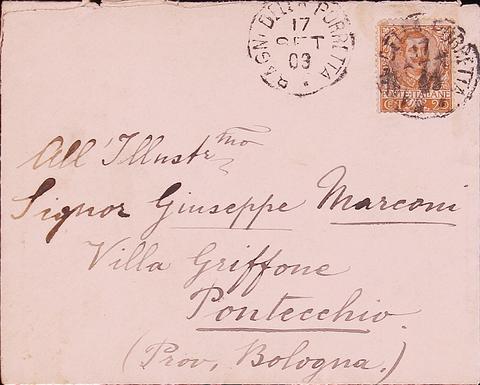 BAGNI DELLA PORRETTA
17
SET
03
POSTE ITALIANE
CENT. 20
All' Illustr.mo
Signor Giuseppe Marconi
Villa Griffone
Pontecchio
(Prov. Bologna.)